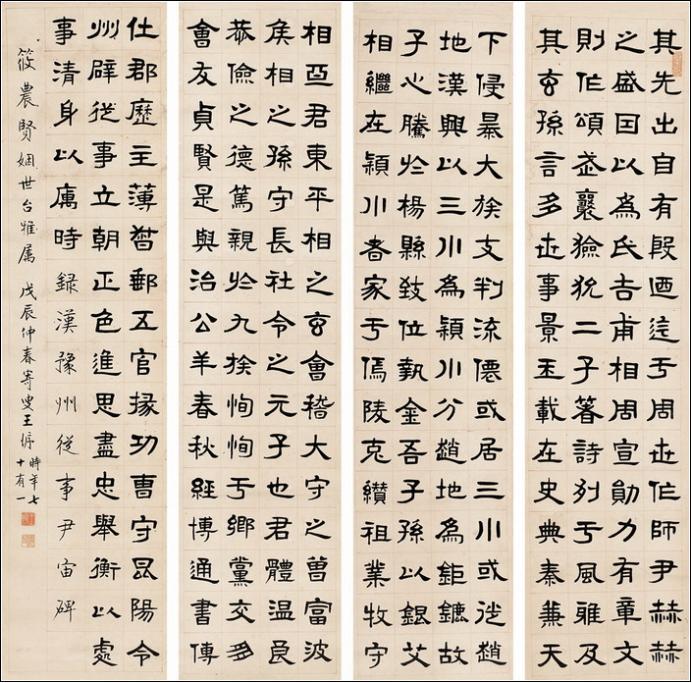 其先出自有殷迺迄于周世作師尹赫赫
之盛因以為氏吉甫相周宣勛力有章文
則作頌武襄獫狁二子著詩列于風雅及
其玄孫言多世事景王載在史典秦兼天
下侵暴大族支判流僊或居三川或徙趙
地漢興以三川為潁川分趙地為鉅鏕故
子心騰於楊縣致位執金吾子孫以銀艾
相繼在潁川者家于傿陵克纘祖業牧守
相亞君東平相之玄會稽大守之曾富波
侯相之孫守長社令之元子也君體溫良
恭儉之德篤親於九族恂恂于鄉黨交朋
會友貞賢是與治公羊春秋經博通書傳
仕郡歷主薄督郵五官掾功曹守昆陽令
州辟從事立朝正色進思盡忠舉衡以處
事清身以厲時 錄漢豫州從事尹宙碑
筱農賢姻世台雅屬 戊辰仲春寄叟王
時年七
十有一